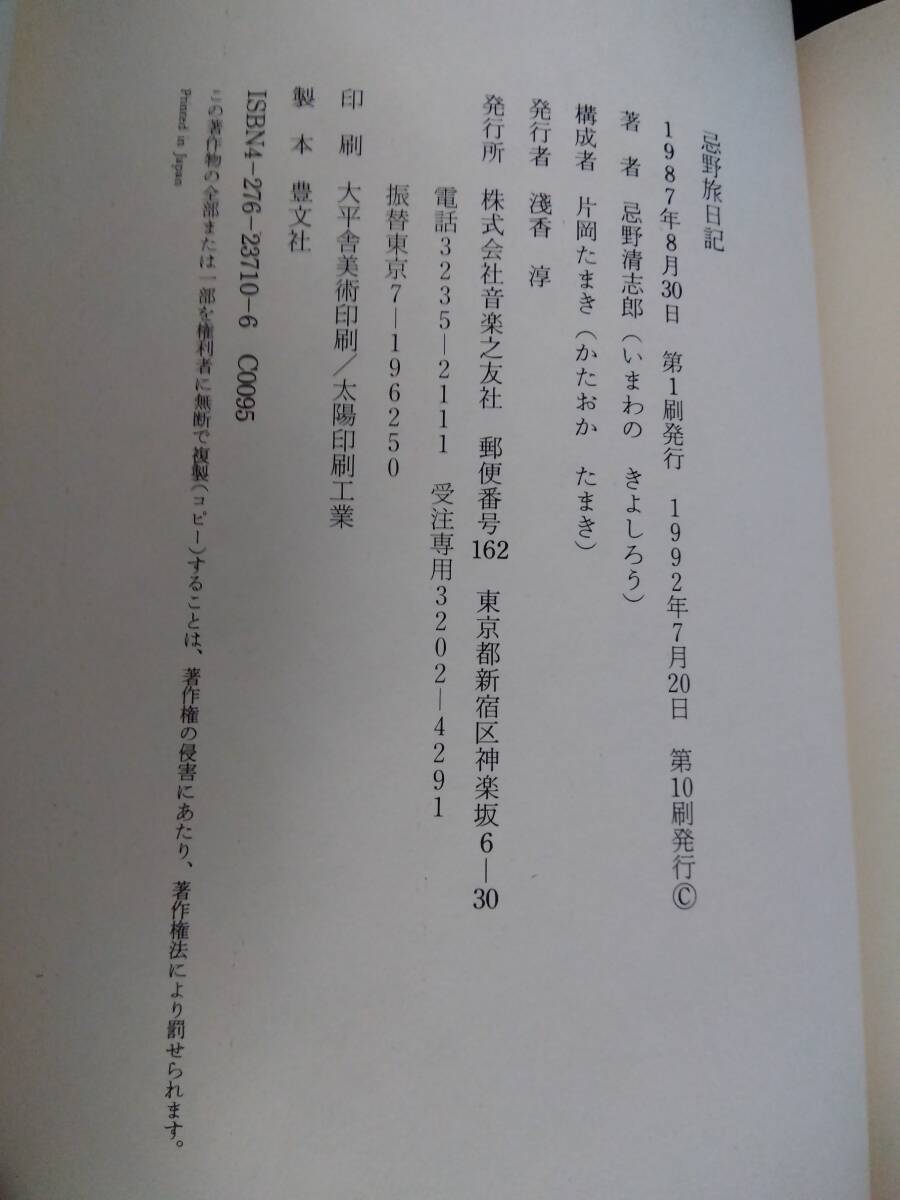 忌野旅日記
1987年8月30日　第1刷発行　1992年7月20日　第10刷発行©
著　者　忌野清志郎（いまわの　きよしろう）
構成者　片岡たまき（かたおか　たまき）
発行者　淺香　淳
発行所　株式会社音楽之友社　郵便番号162　東京都新宿区神楽坂6—30
電話3235—2111　受注専用3202—4291
振替東京7—196250
印　刷　大平舎美術印刷／太陽印刷工業
製　本　豊文社
ISBN4-276-23710-6　C0095
この著作物の全部または一部を権利者に無断で複製（コピー）することは、著作権の侵害にあたり、著作権法により罰せられます。
Printed in Japan